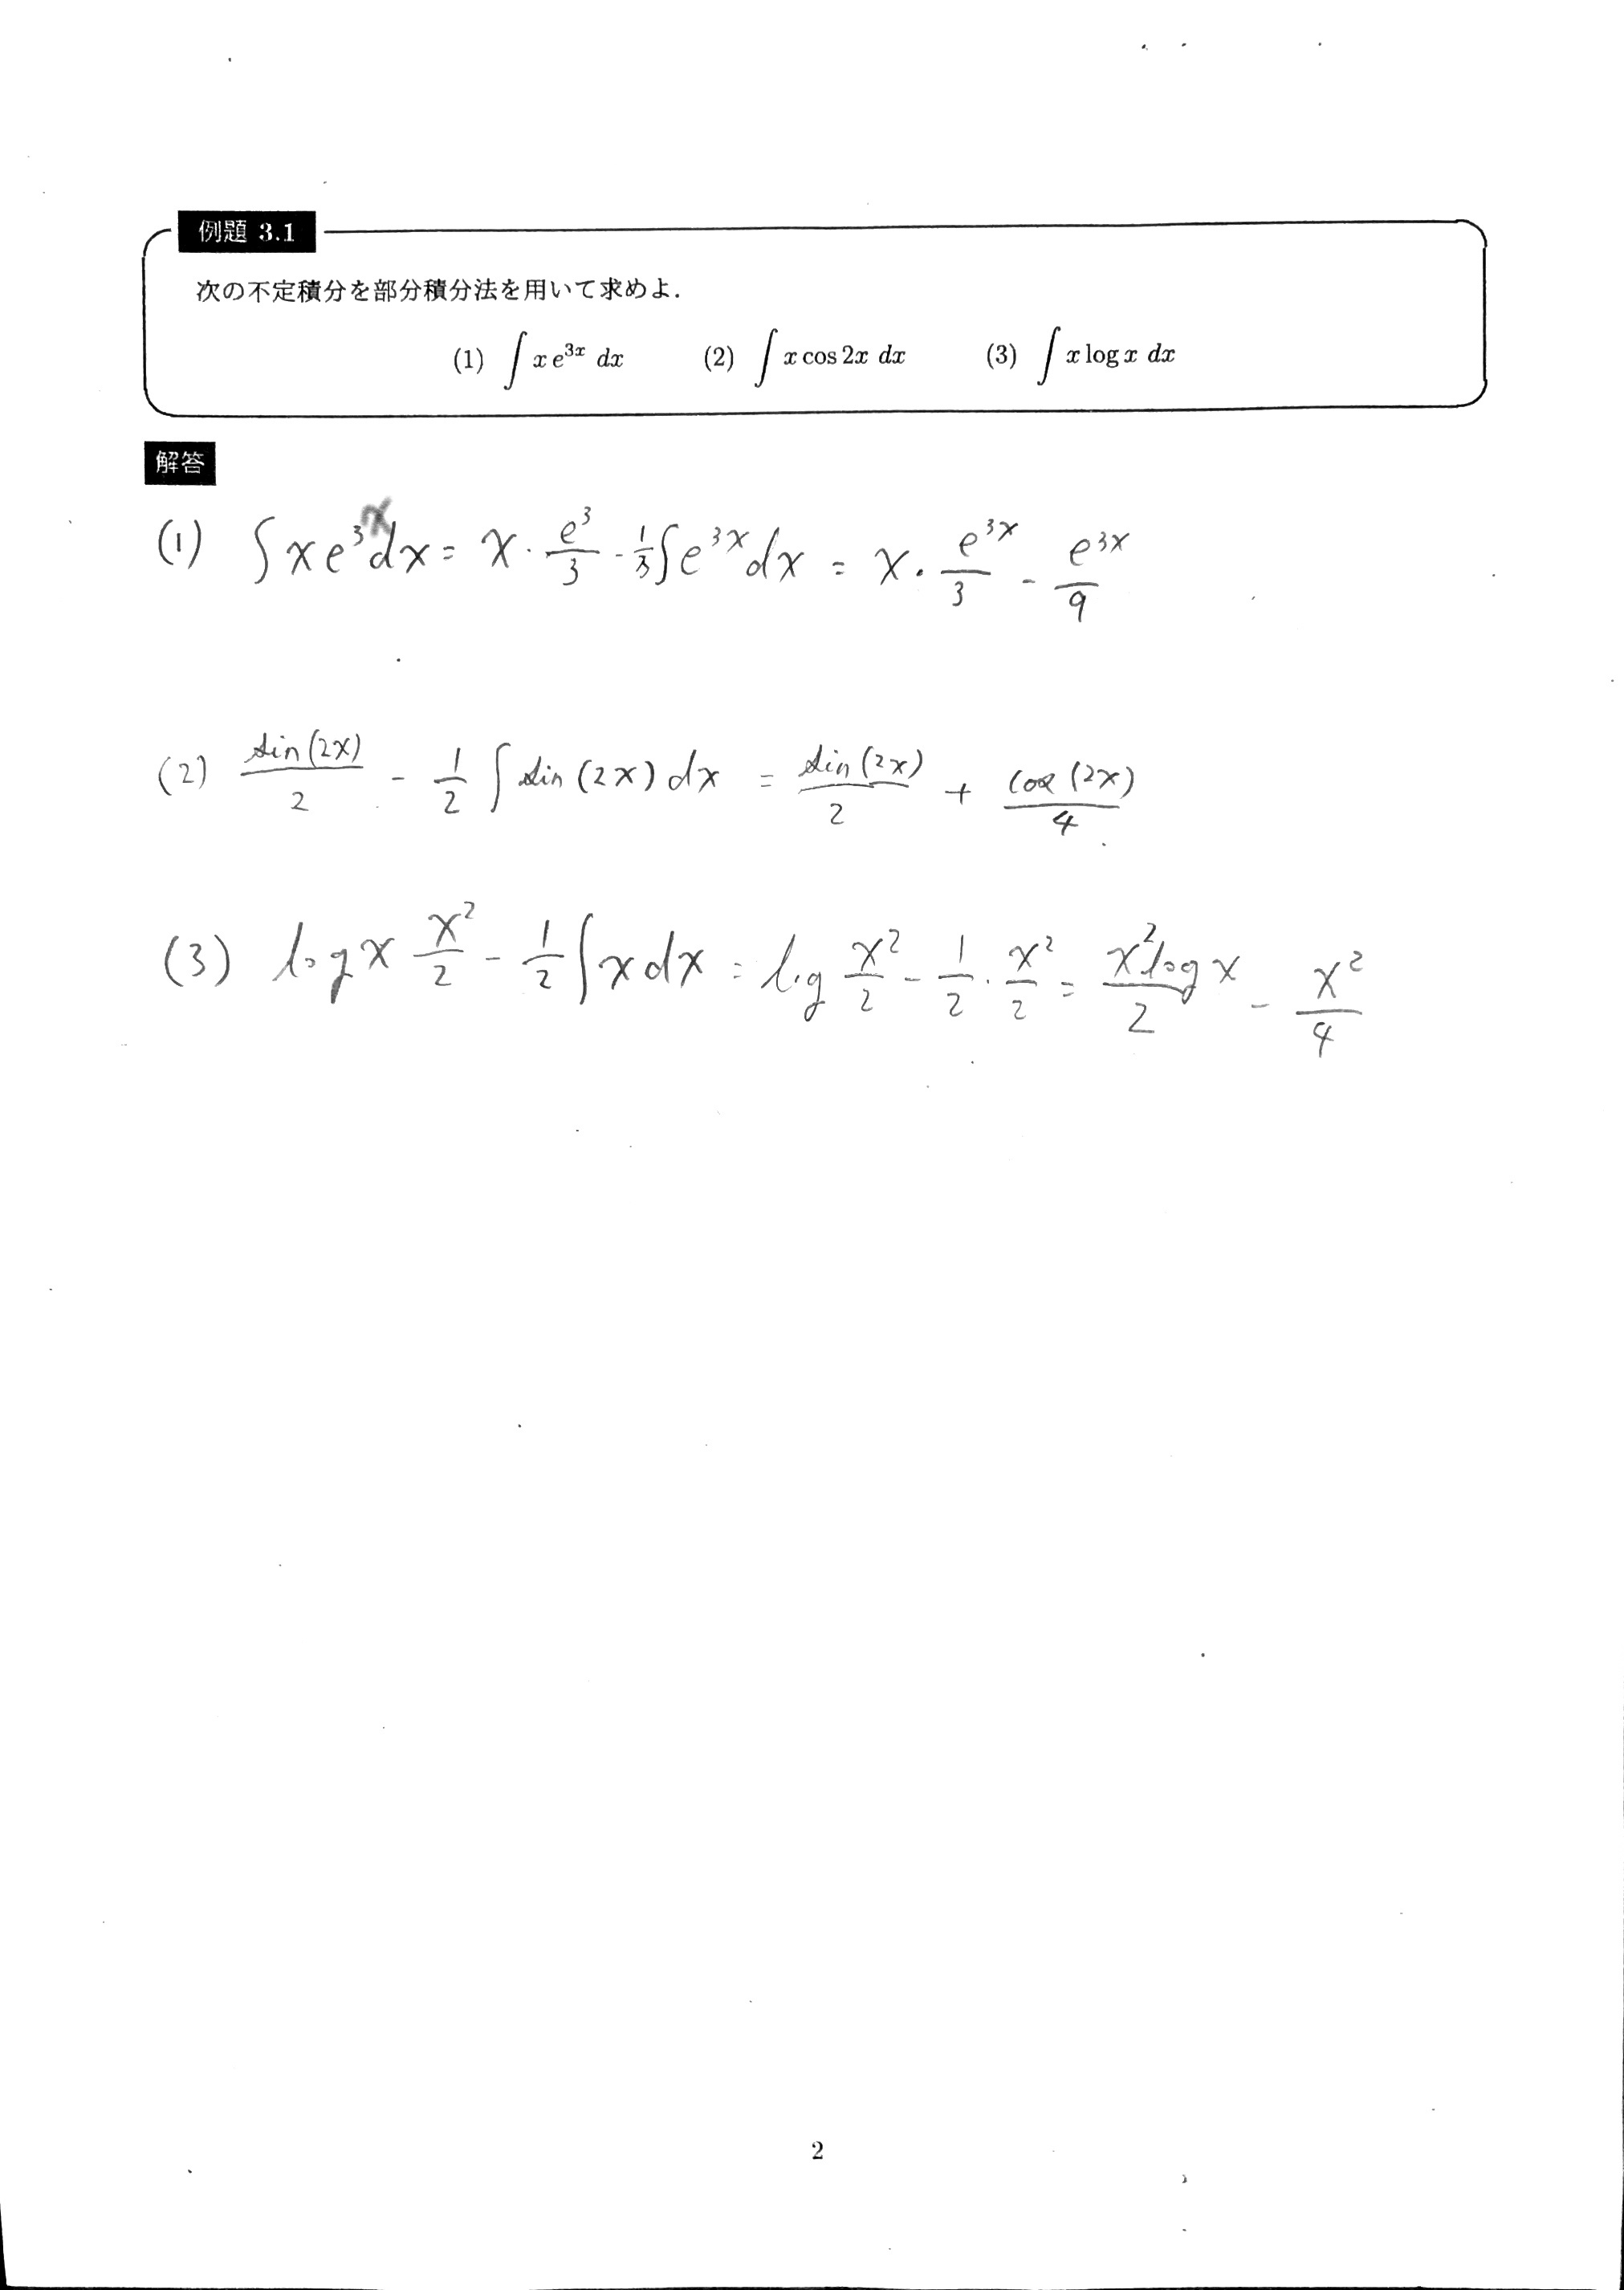 例題 3.1
次の不定積分を部分積分法を用いて求めよ.
(1) ∫ x e^{3x} dx (2) ∫ x cos 2x dx (3) ∫ x log x dx
解答
(1) ∫ x e^{3x} dx = x · \frac{e^3}{3} - \frac{1}{3} ∫ e^{3x} dx = x · \frac{e^{3x}}{3} - \frac{e^{3x}}{9}
(2) \frac{sin(2x)}{2} - \frac{1}{2} ∫ sin(2x) dx = \frac{sin(2x)}{2} + \frac{cos(2x)}{4}
(3) log x \frac{x^2}{2} - \frac{1}{2} ∫ x dx = log \frac{x^2}{2} - \frac{1}{2} · \frac{x^2}{2} = \frac{x^2 log x}{2} - \frac{x^2}{4}
2